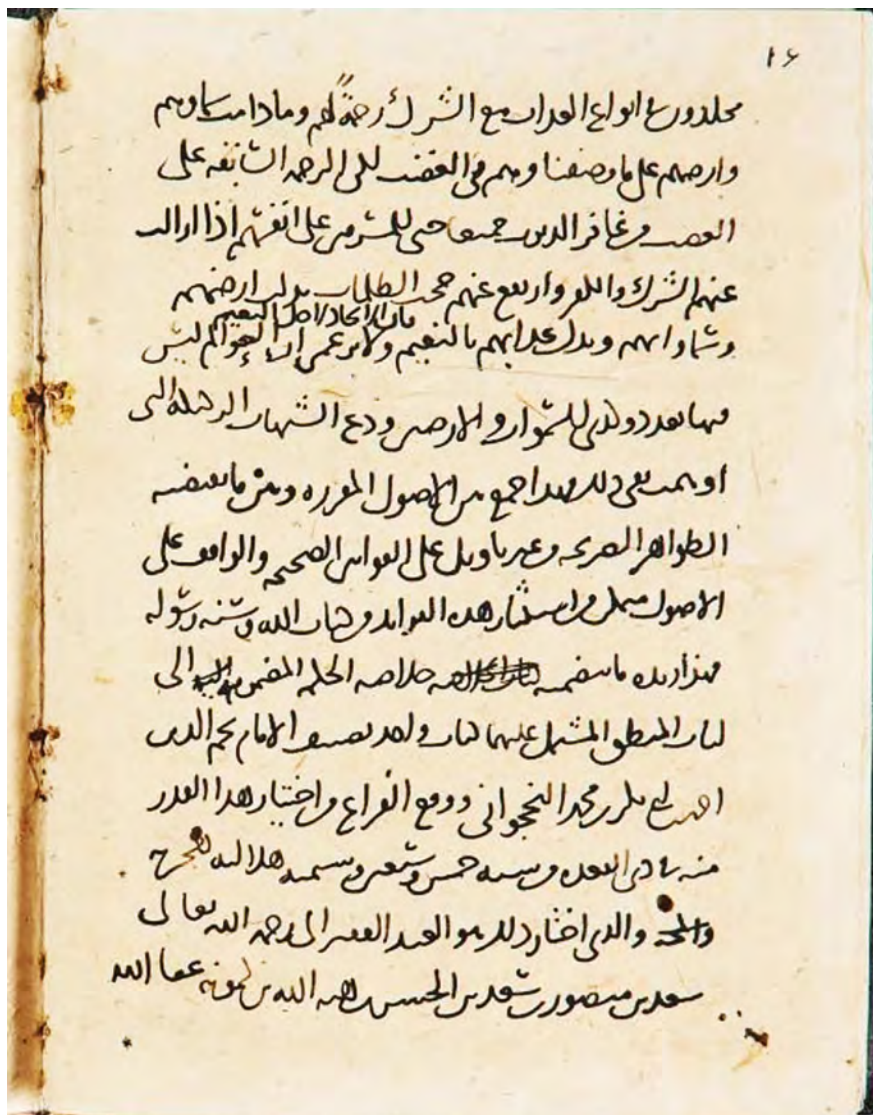 ١٤
مخلدون في انواع العذاب مع الشرك رحمة لهم وما دامت سماوهم
وارضهم على ما وصفنا وهم في الغضب الى الرحمه السابقه على
الغضب وغافر الذنوب جميعا حتى للمشركين على انفسهم اذا ازالت
عنهم الشرك والكفر وارتفع عنهم حجب الظلمات بدلت ارضهم
بان اتحاد اهل النعيم
وسماواتهم وبدل عذابهم بالنعيم ولا العوالم ليس
فيها تعدد وكذلك للسموات والارض ودع الشبهات التي
الاصول المقرره وبين ما تقتضيه
الظواهر الصريحه من غير تاويل على القوانين الصحيحه والواقف على
الاصول متمكن من استثمار هذه الفوايد من كتاب الله وسنه رسوله
فهذا زبده ما تتضمنه خلاصه الحكمه المضموم الى
لباب المنطق المشتمل عليهما كتاب واحد تصنيف الامام نجم الدين
احمد بن ابي بكر بن محمد النخجواني ووقع الفراغ من اختيار هذا القدر
منه في ذي القعده من سنه خمس وسبعين وستمائه هلاليه للهجره
والذي اختار ذلك هو العبد الفقير الى رحمه الله تعالى
سعد بن منصور بن سعد بن الحسن بن هبه الله بن كمونه عفا الله